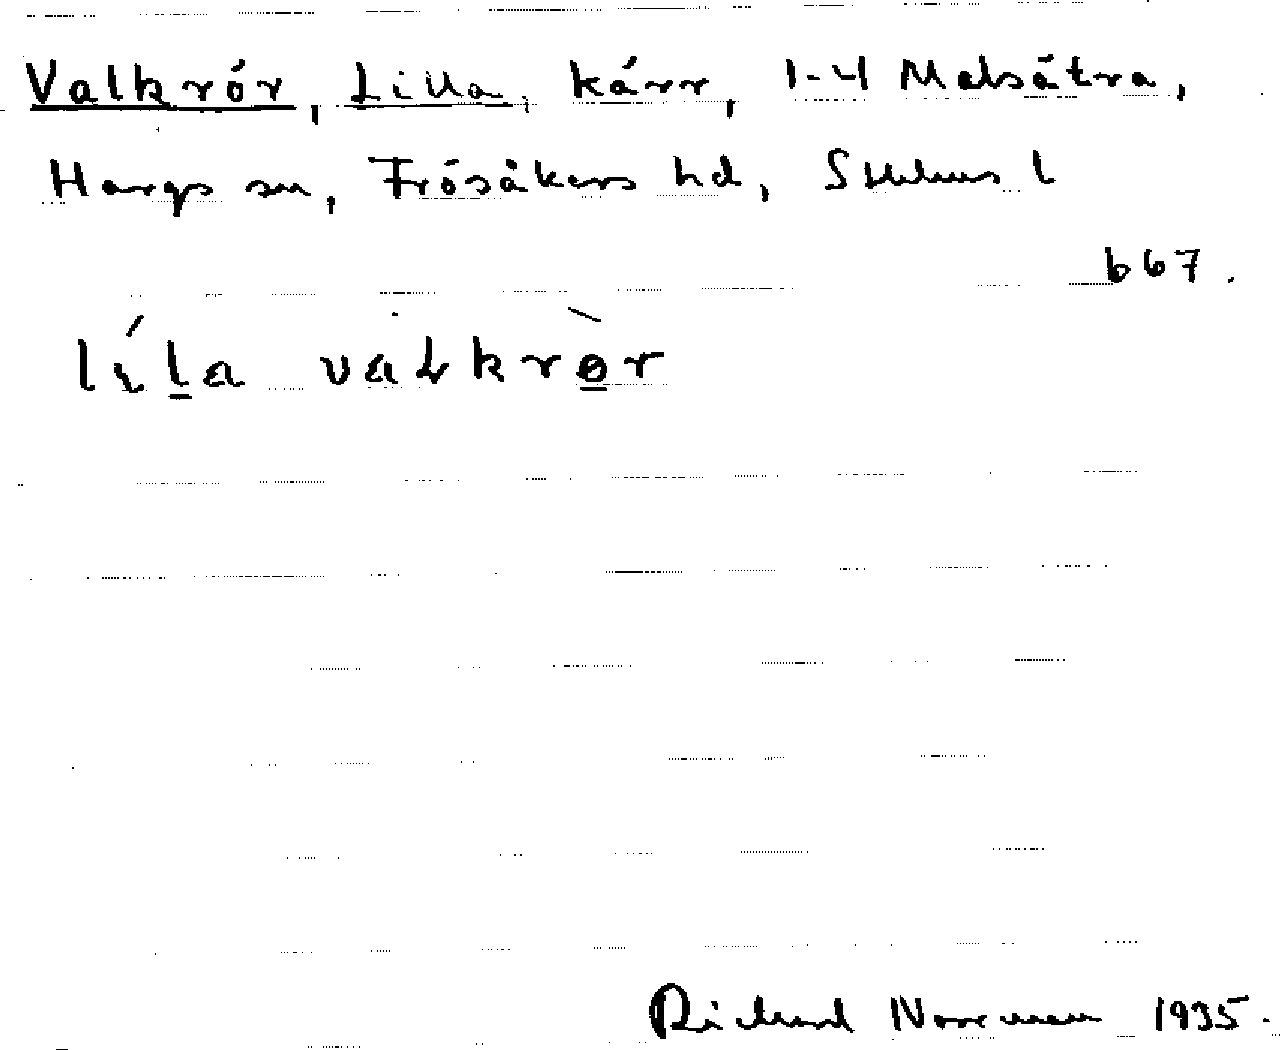 Valkrör, Lilla, kärr, 1-4 Malsätra,
Hargs sn, Frösåkers hd, Sthlms l
667.
lı́ḻa valkrö̀r
Richard Norrman 1935.